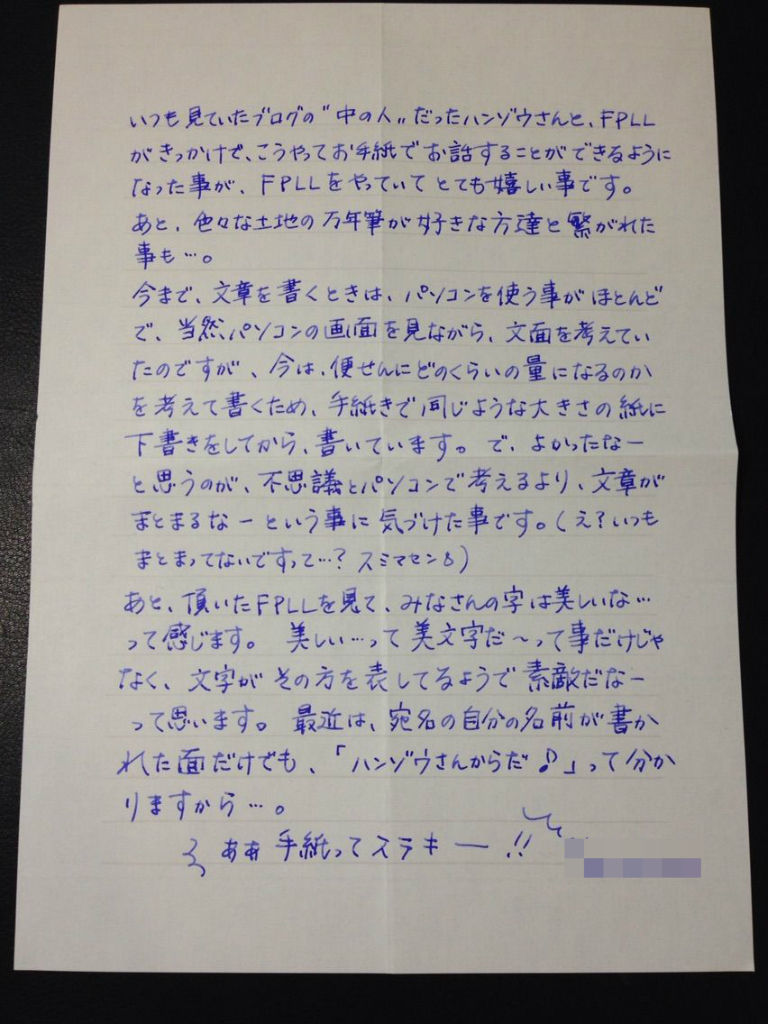 いつも見ていたブログの〝中の人〟だったハンゾウさんと、FPLL
がきっかけで、こうやってお手紙でお話することができるように
なった事が、FPLLをやっていてとても嬉しい事です。
あと、色々な土地の万年筆が好きな方達と繋がれた
事も…。
今まで、文章を書くときは、パソコンを使う事がほとんど
で、当然パソコンの画面を見ながら、文面を考えてい
たのですが、今は、便せんにどのくらいの量になるのか
を考えて書くため、手紙きで同じような大きさの紙に
下書きをしてから、書いています。で、よかったなー
と思うのが、不思議とパソコンで考えるより、文章が
まとまるなーという事に気づけた事です。(え?いつも
まとまってないですって…?スミマセン)
あと、頂いたFPLLを見て、みなさんの字は美しいな…
って感じます。 美しい…って美文字だ〜って事だけじゃ
なく、文字がその方を表してるようで素敵だなー
って思います。 最近は、宛名の自分の名前が書か
れた面だけでも、「ハンゾウさんからだ♪」って分か
りますから…。
あぁ手紙ってステキー!!